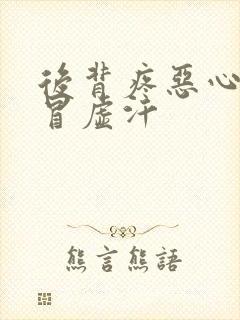 後背疼惡心
冒虛汗
熊言熊語